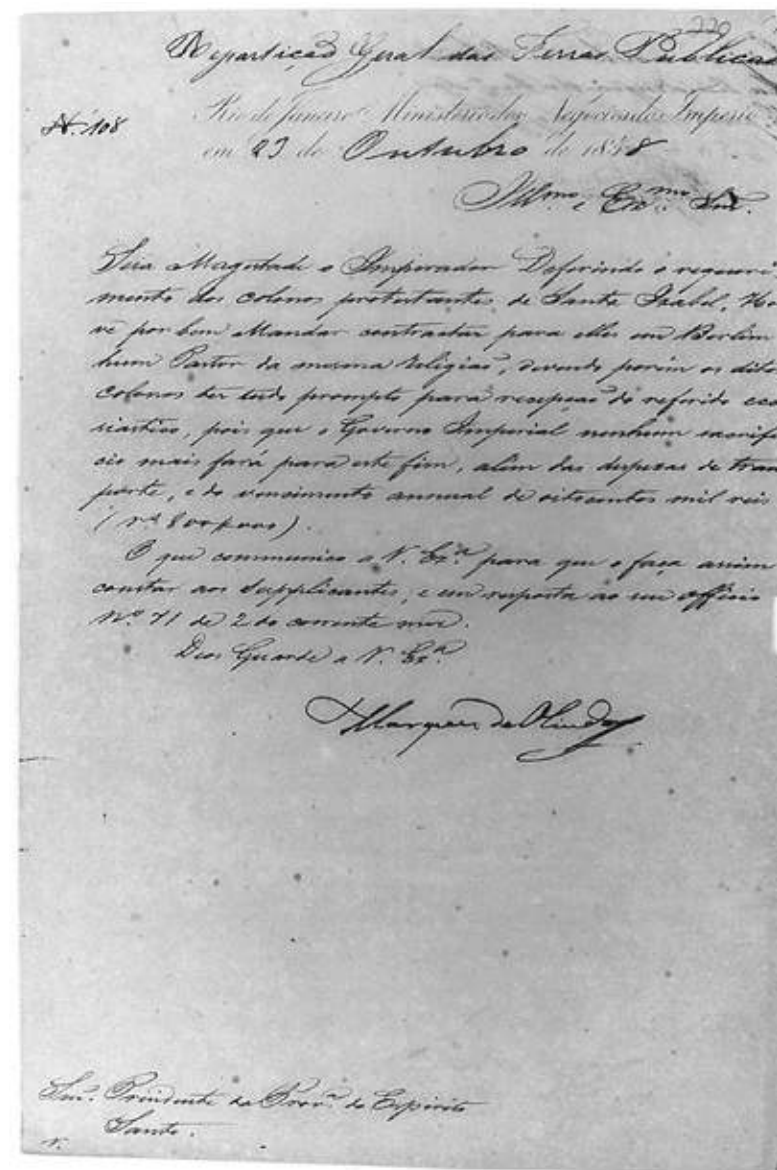 220
Repartição Geral das Terras Publicas
N.º 108
Rio de Janeiro Ministerio dos Negocios do Imperio
em 23 de Outubro de 1858
Ill.mo e Ex.mo Snr.
Sua Magestade o Imperador Deferindo o requeri
mento dos colonos protestantes de Santa Izabel, Ho
vé por bem Mandar contractar para elles em Berlim
hum Pastor da mesma Religião, devendo porém os ditos
colonos ter tudo prompto para recepção do referido eccle
siastico, pois que o Governo Imperial nenhum sacrifi
cio mais fará para este fim, além das despezas de trans
porte, e do vencimento annual de oitocentos mil reis
(
O que communico a V. Ex.ª para que o faça assim
constar aos supplicantes, e em resposta ao seu officio
N.º 71 de 2 do corrente mez.
Deos Guarde a V. Ex.ª
Marquez de Olinda
Snr. Presidente da Prov.ª do Espirito
Santo.